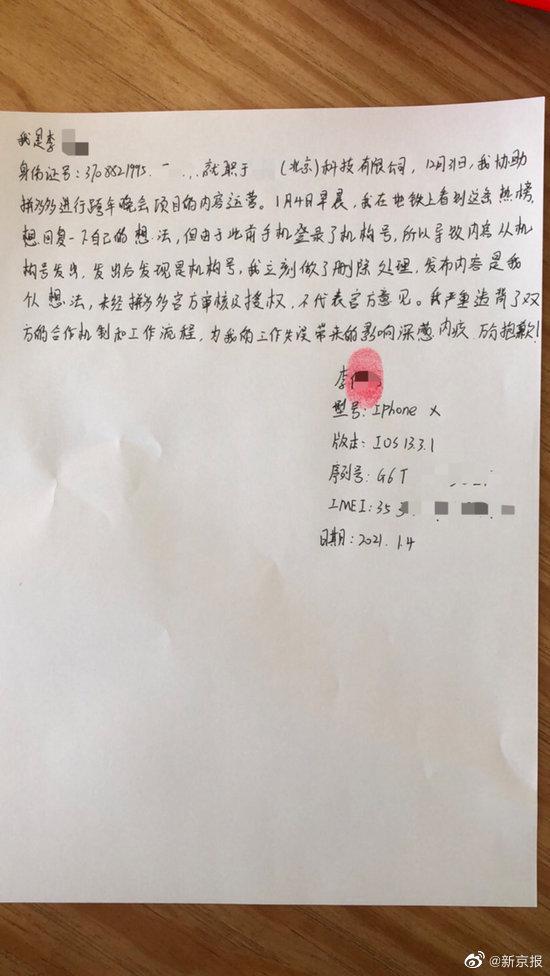 我是李
身份证号:3708821995. ... 就职于 (北京)科技有限公司,12月31日,我协助
拼多多进行跨年晚会项目的内容运营。1月4日早晨,我在地铁上看到这条热榜,
想回复一下自己的想法,但由于此前手机登录了机构号,所以导致内容从机
构号发出,发出后发现是机构号,我立刻做了删除处理,发布内容是我
个人想法,未经拼多多官方审核及授权,不代表官方意见。我严重违背了双
方的合作机制和工作流程,为我的工作失误带来的影响深感内疚 万分抱歉!
李
型号:IPhone X
版本:IOS 13.3.1
序列号:G6T
IMEI:35
日期:2021.1.4
@新京报